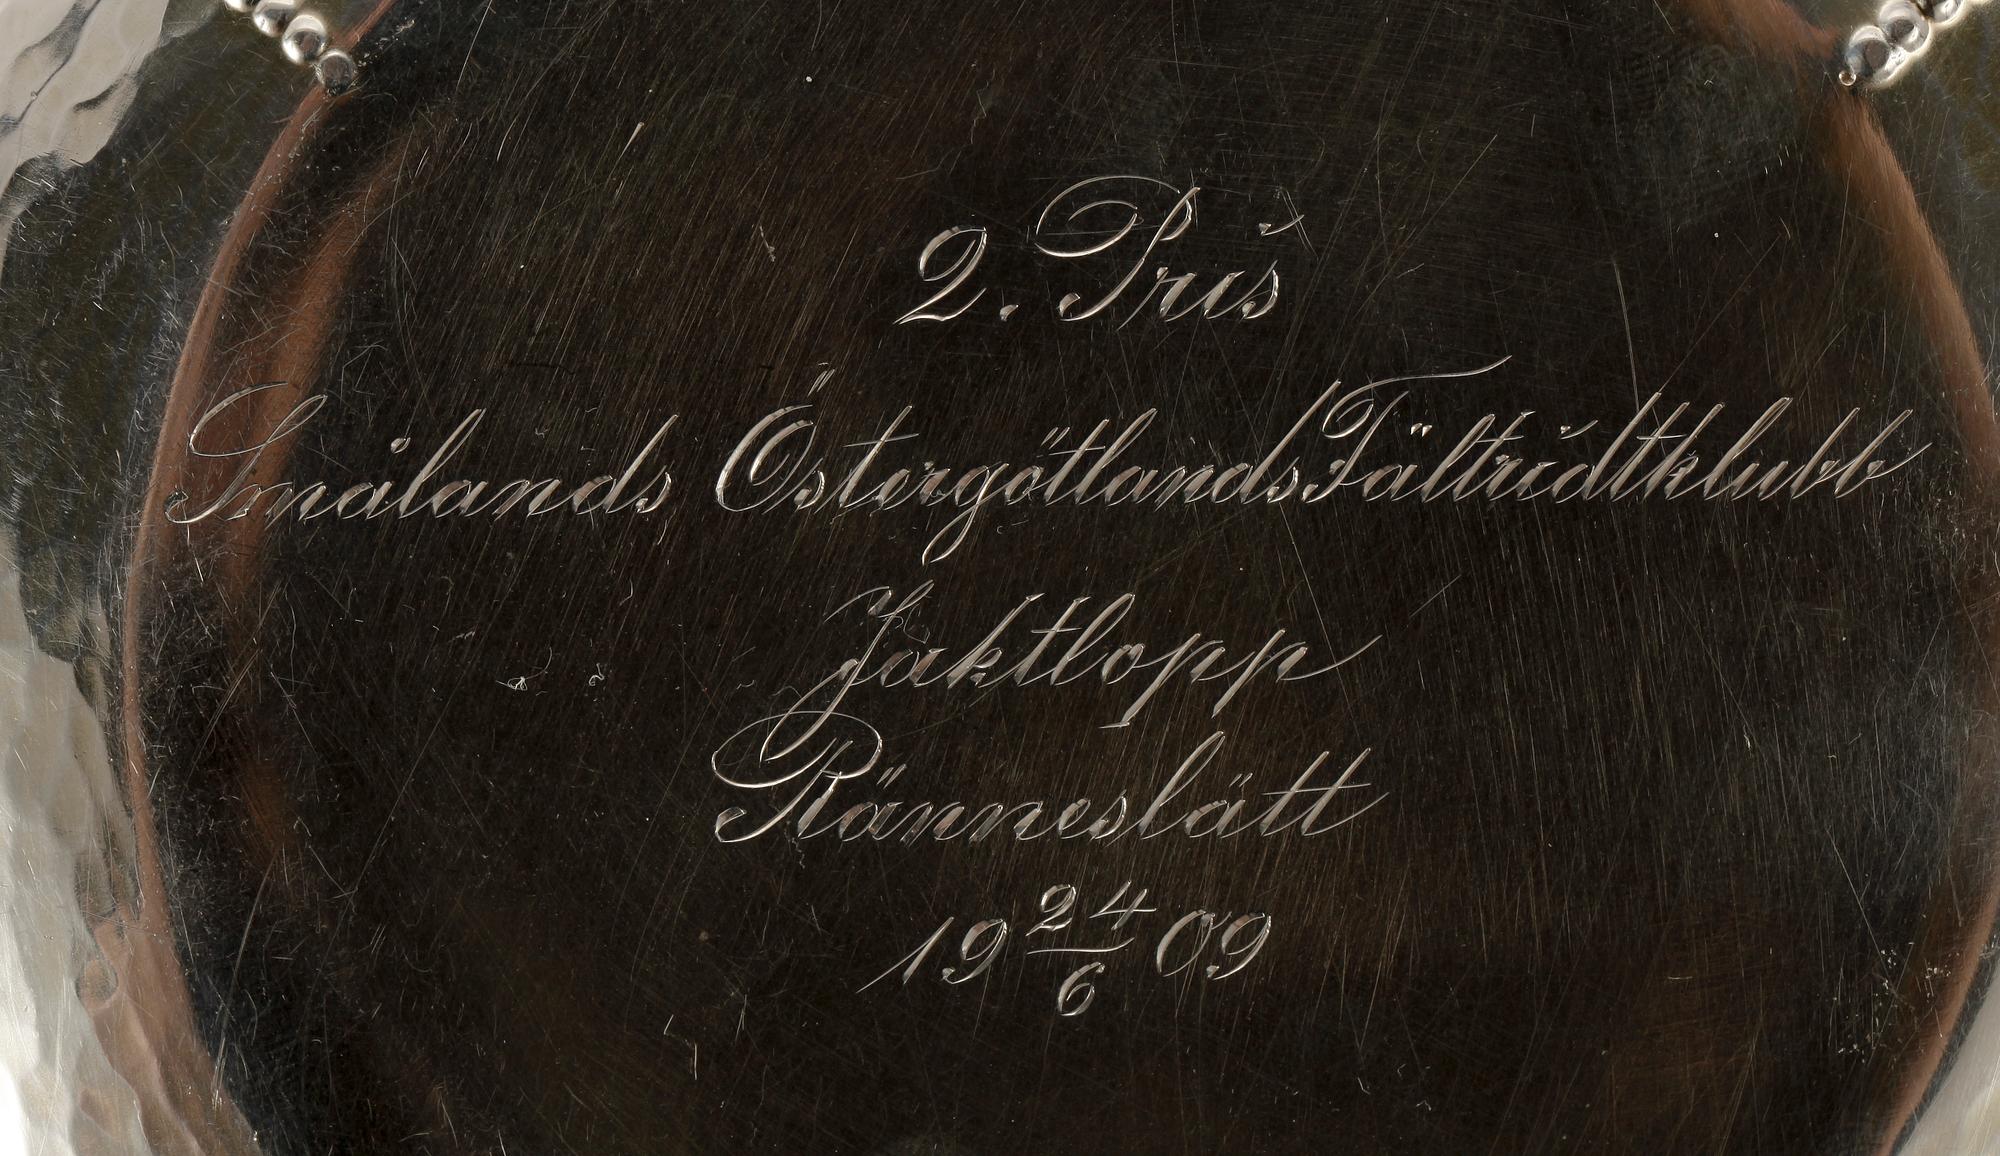 2. Pris
Smålands Östergötlands Fältridtklubb
Jaktlopp
Ränneslätt
19 24/6 09